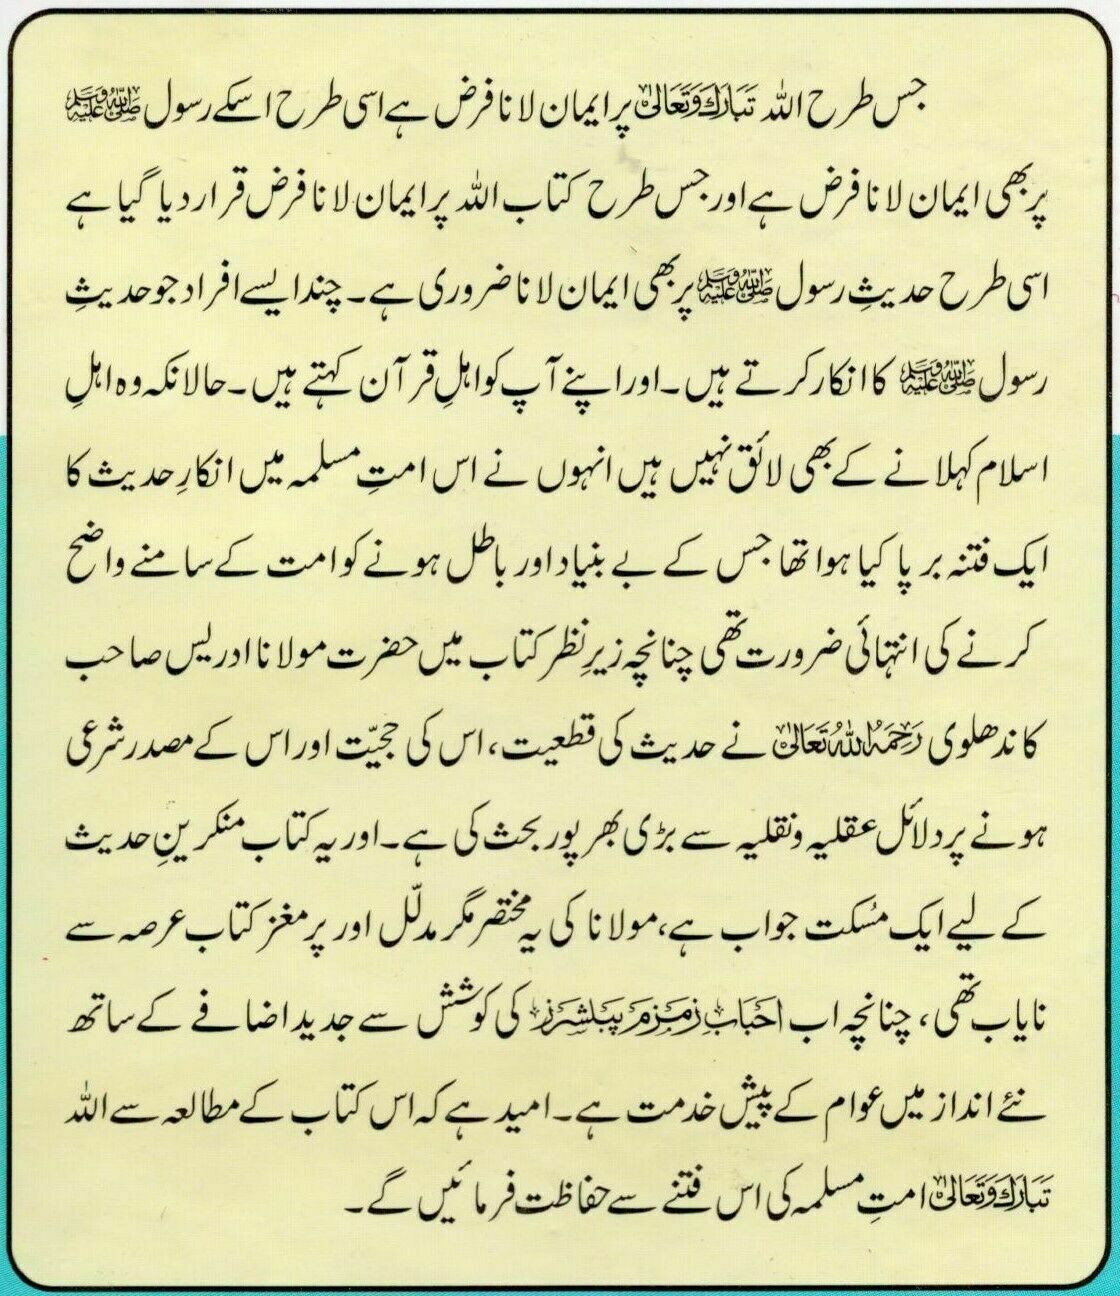 جس طرح اللہ تَبَارَكَ وَتَعَالٰی پر ایمان لانا فرض ہے اسی طرح اسکے رسول ﷺ
پر بھی ایمان لانا فرض ہے اور جس طرح کتاب اللہ پر ایمان لانا فرض قرار دیا گیا ہے
اسی طرح حدیثِ رسول ﷺ پر بھی ایمان لانا ضروری ہے۔ چند ایسے افراد جو حدیثِ
رسول ﷺ کا انکار کرتے ہیں۔ اور اپنے آپ کو اہلِ قرآن کہتے ہیں۔ حالانکہ وہ اہلِ
اسلام کہلانے کے بھی لائق نہیں ہیں انہوں نے اس امتِ مسلمہ میں انکارِ حدیث کا
ایک فتنہ برپا کیا ہوا تھا جس کے بے بنیاد اور باطل ہونے کو امت کے سامنے واضح
کرنے کی انتہائی ضرورت تھی چنانچہ زیرِ نظر کتاب میں حضرت مولانا ادریس صاحب
کاندھلوی رَحِمَهُ اللّٰهُ تَعَالٰی نے حدیث کی قطعیت، اس کی حجیّت اور اس کے مصدر شرعی
ہونے پر دلائل عقلیہ ونقلیہ سے بڑی بھر پور بحث کی ہے۔ اور یہ کتاب منکرینِ حدیث
کے لیے ایک مُسکت جواب ہے، مولانا کی یہ مختصر مگر مدلّل اور پر مغز کتاب عرصہ سے
نایاب تھی، چنانچہ اب احبابِ زمزم پبلشرز کی کوشش سے جدید اضافے کے ساتھ
نئے انداز میں عوام کے پیش خدمت ہے۔ امید ہے کہ اس کتاب کے مطالعہ سے اللہ
تَبَارَكَ وَتَعَالٰی امتِ مسلمہ کی اس فتنے سے حفاظت فرمائیں گے۔